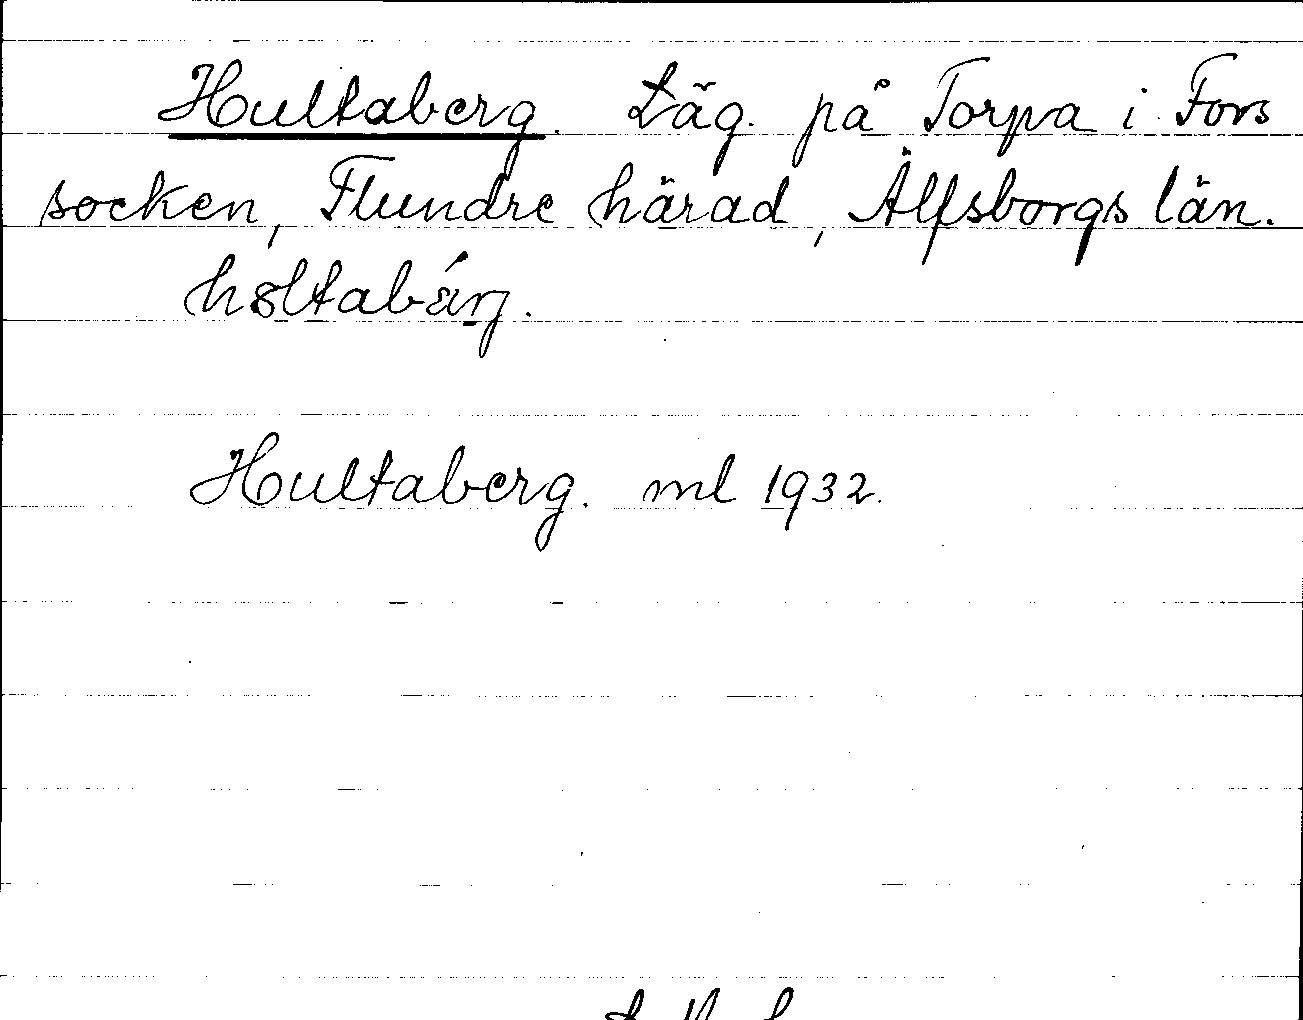 Hultaberg. Läg. på Torpa i Fors
socken, Flundre härad, Älfsborgs län.
Hultaberg. ml 1932.